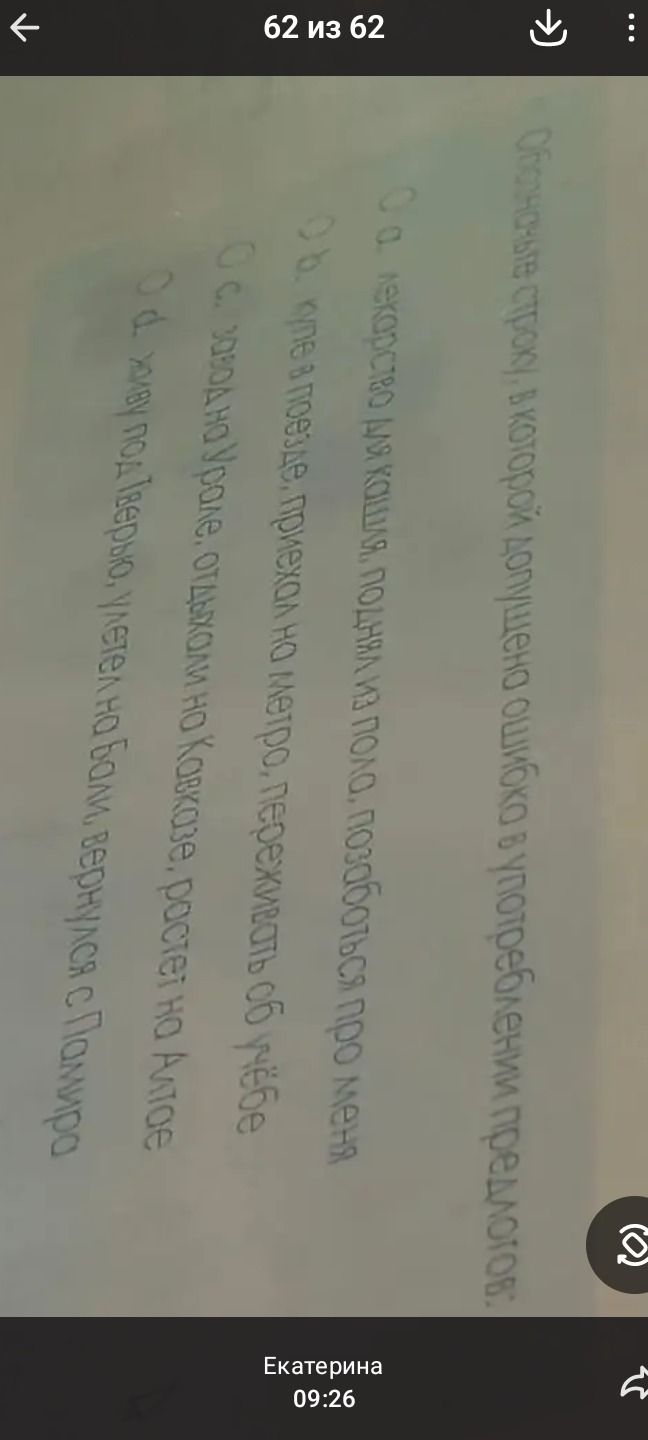 62 из 62
Обозначьте строку, в которой допущена ошибка в употреблении предлогов:
a. лекарство для кашля, поднял из пола, позаботься про меня
b. купе в поезде, приехал на метро, переживать об учёбе
c. завод на Урале, отдыхали на Кавказе, растет на Алтае
d. живу под Тверью, улетел на Бали, вернулся с Памира
Екатерина
09:26